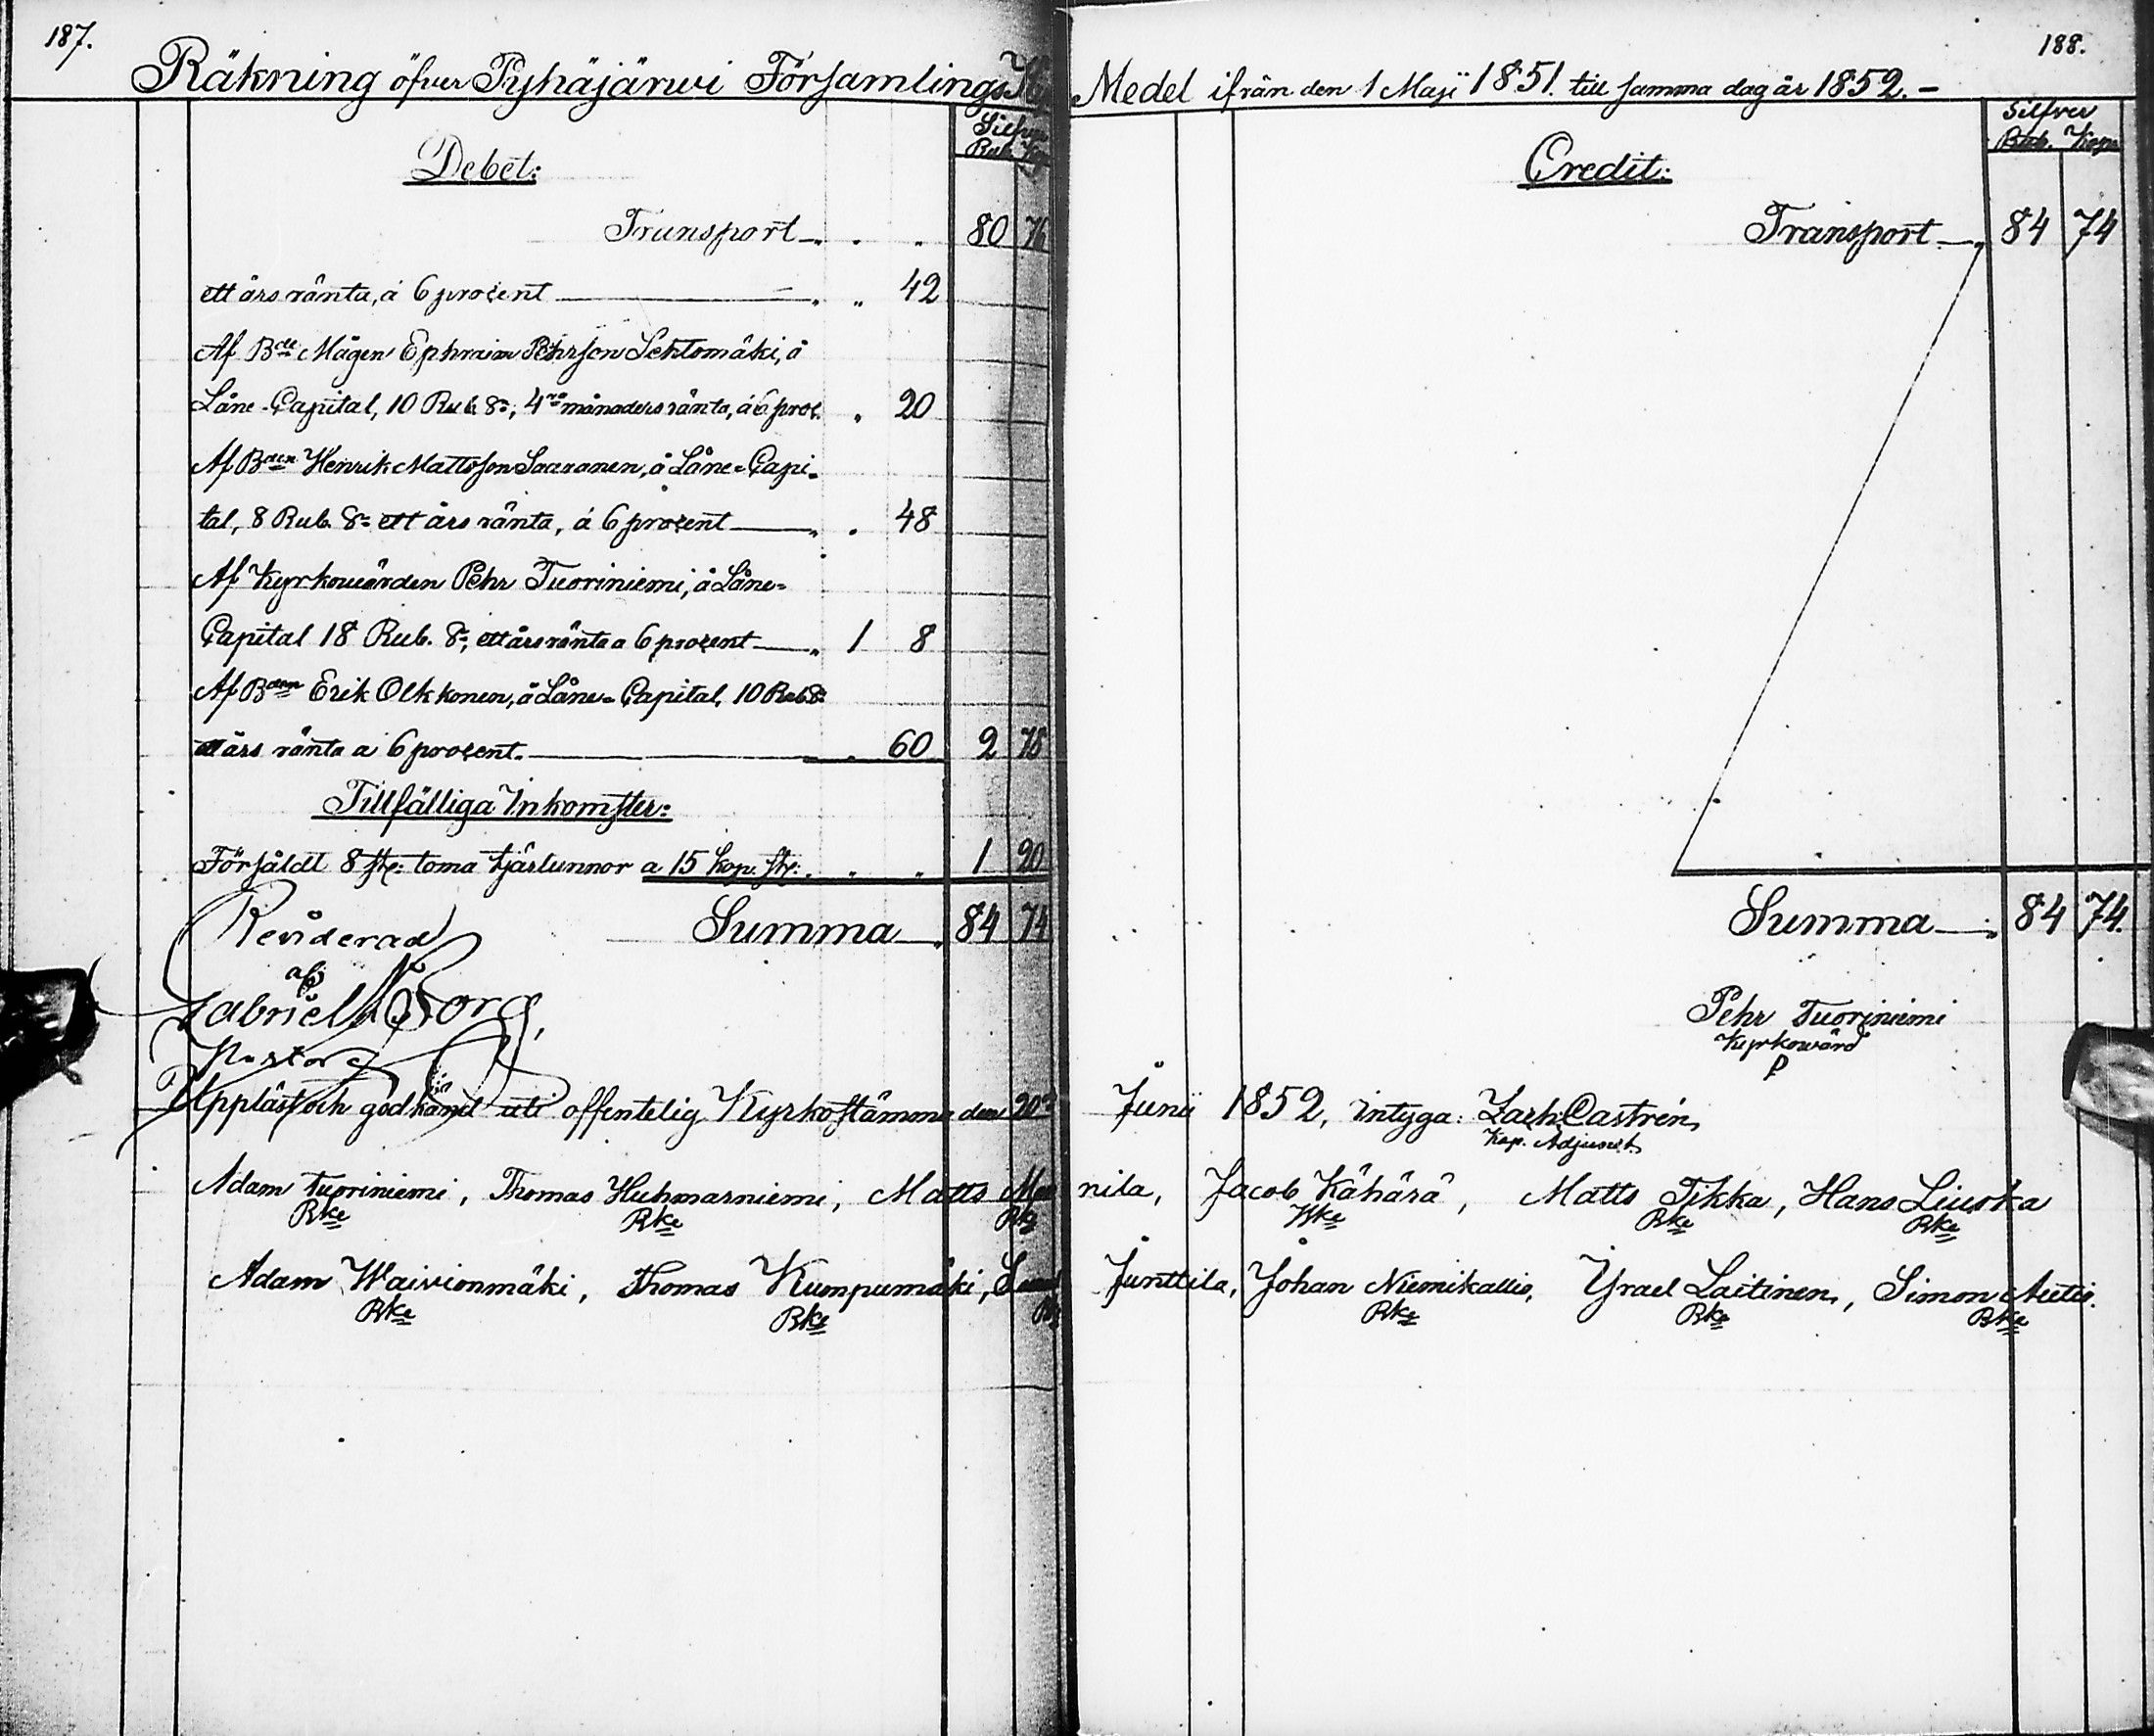 187.
Räkning öfver Pyhäjärwi Församlings
Silfver
Rub. Kop.
Debet:
Transport 80 76
ett års ränta, à 6 procent 42
Af Bde Mågen Ephraim Pehrson Lehtomäki, å
Låne-Capital, 10 Rub. Sr, 4ra månaders ränta, à 6 proc. 20
Af Bden Henrik Mattsson Saaranen, å Låne-Capi-
tal, 8 Rub. Sr ett års ränta, à 6 procent 48
Af Kyrkowärden Pehr Tuoriniemi, å Låne-
Capital 18 Rub. Sr, ett års ränta a 6 procent 1 8
Af Bden Erik Olkkonen, å Låne-Capital, 10 Rub. Sr
ett års ränta a 6 procent. 60 2 78
Tillfälliga Inkomster:
Försåldt 8 st: toma tjärtunnor a 15 kop. st: 1 20
Summa 84 74
Reviderad
af
Gabriel Borg,
Pastor
Uppläst och godkänd uti offentelig Kyrkostämma den 20
Adam Tuoriniemi, Thomas Huhmarniemi, Matts
Bke Bke Bke
Adam Waivionmäki, Thomas Kumpumäki,
Bke Bke
188.
Medel ifrån den 1 Maji 1851. till samma dag år 1852.-
Silfver
Rub. Kop.
Credit:
Transport 84 74
Summa 84 74.
Pehr Tuoriniemi
Kyrkowärd
P
Junii 1852, intyga: Zach. Castrén,
Kap. Adjunct.
nila, Jacob Kähärä, Matts Tikka, Hans Liuska
Bke Bke
Junttila, Johan Niemikallio, Ysrael Laitinen, Simon Autio.
Bke Bke Bke